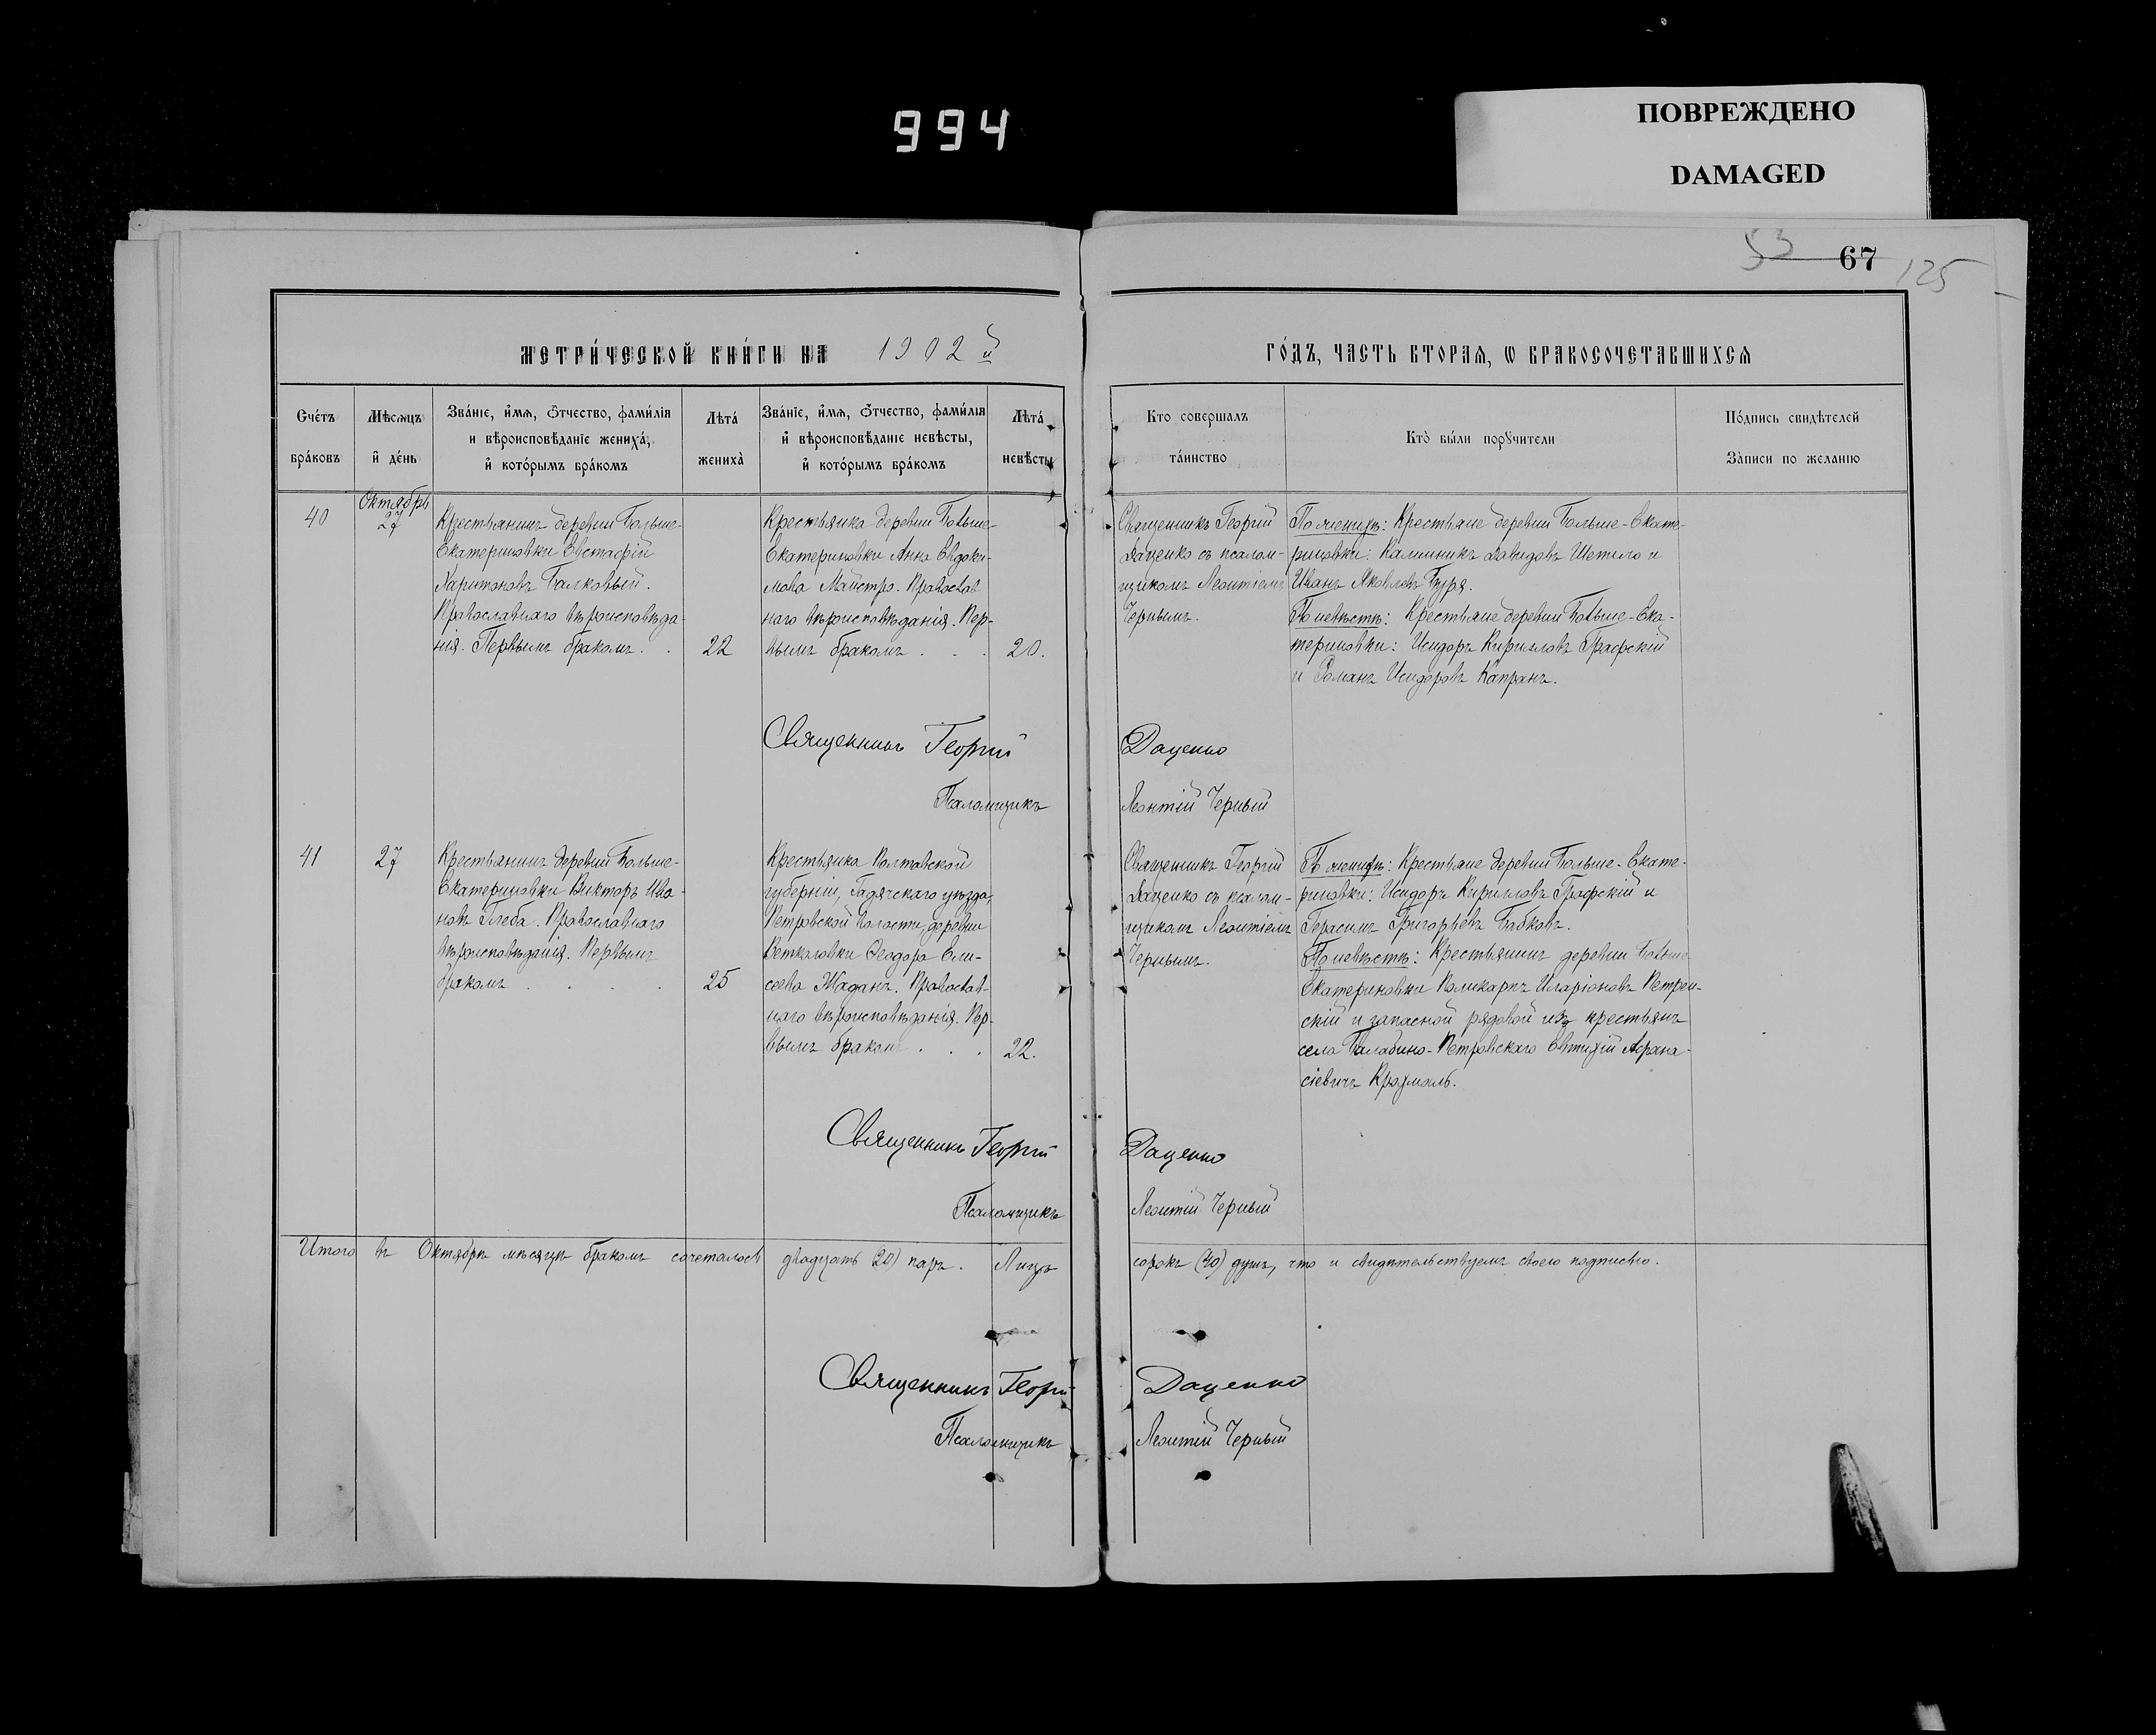 994
ПОВРЕЖДЕНО
DAMAGED
53 67 125
МЕТРИ́ЧЕСКОЙ КНИ́ГИ НА 1902 й
ГО́ДЪ, ЧАСТЬ ВТОРАѦ, Ѡ БРАКОСОЧЕТАВШИХСѦ
Счéтъ
брáковъ
Мѣсѧцъ
и҆ дéнь
Звáнїе, и҆́мѧ, ѻ҆́тчество, фами́лїѧ
и вѣроисповѣ́данїе женихá,
и҆ котóрымъ брáкомъ
Лѣтá
женихà
Звáнїе, и҆́мѧ, ѻ҆́тчество, фами́лїѧ
и҆ вѣроисповѣ́данїе невѣ́сты,
и҆ котóрымъ брáкомъ
Лѣтá
невѣ́сты
Кто совершалъ
тáинство
Ктò бы́ли порꙋчители
Пóдпись свидѣ́телей
Зàписи по желанїю
40
Октябрь
27
Крестьянинъ деревни Больше-
Екатериновки Евстафій
Харитоновъ Балковый.
Православнаго вѣроисповѣда-
нія. Первымъ бракомъ . .
22
Крестьянка деревни Больше-
Екатериновки Анна Евдоки-
мова Майстро. Православ-
наго вѣроисповѣданія. Пер-
вымъ бракомъ . . .
20.
Священникъ Георгій
Даценко съ псалом-
щикомъ Леонтіемъ
Чернымъ.
По женихѣ: Крестьяне деревни Больше-Екате-
риновки: Каллиникъ Давидовъ Шетило и
Иванъ Яковлевъ Буря.
По невѣстѣ: Крестьяне деревни Больше-Ека-
териновки: Исидоръ Кирилловъ Графскій
и Романъ Исидоровъ Капранъ.
Священникъ Георгій Даценко
Псаломщикъ Леонтій Черный
41
27
Крестьянинъ деревни Больше-
Екатериновки Викторъ Ива-
новъ Глеба. Православнаго
вѣроисповѣданія. Первымъ
бракомъ . . . .
25
Крестьянка Полтавской
губерніи, Гадячскаго уѣзда,
Петровской волости, деревни
Веткаловки Ѳеодора Ели-
сеева Жаданъ. Православ-
наго вѣроисповѣданія. Пер-
вымъ бракомъ . . .
22.
Священникъ Георгій
Даценко съ псалом-
щикомъ Леонтіемъ
Чернымъ.
По женихѣ: Крестьяне деревни Больше-Екате-
риновки: Исидоръ Кирилловъ Графскій и
Герасимъ Григорьевъ Бабковъ.
По невѣстѣ: Крестьянинъ деревни Больше
Екатериновки Поликарпъ Иларіоновъ Петрен-
скій и запасной рядовой изъ крестьянъ
села Балабино-Петровскаго Евтихій Афана-
сіевичъ Крохмаль.
Священникъ Георгій Даценко
Псаломщикъ Леонтій Черный
Итого въ Октябрѣ мѣсяцѣ бракомъ сочеталось двадцать (20) паръ. Лицъ сорокъ (40) душъ, что и свидѣтельствуемъ своею подписью.
Священникъ Георгій Даценко
Псаломщикъ Леонтій Черный